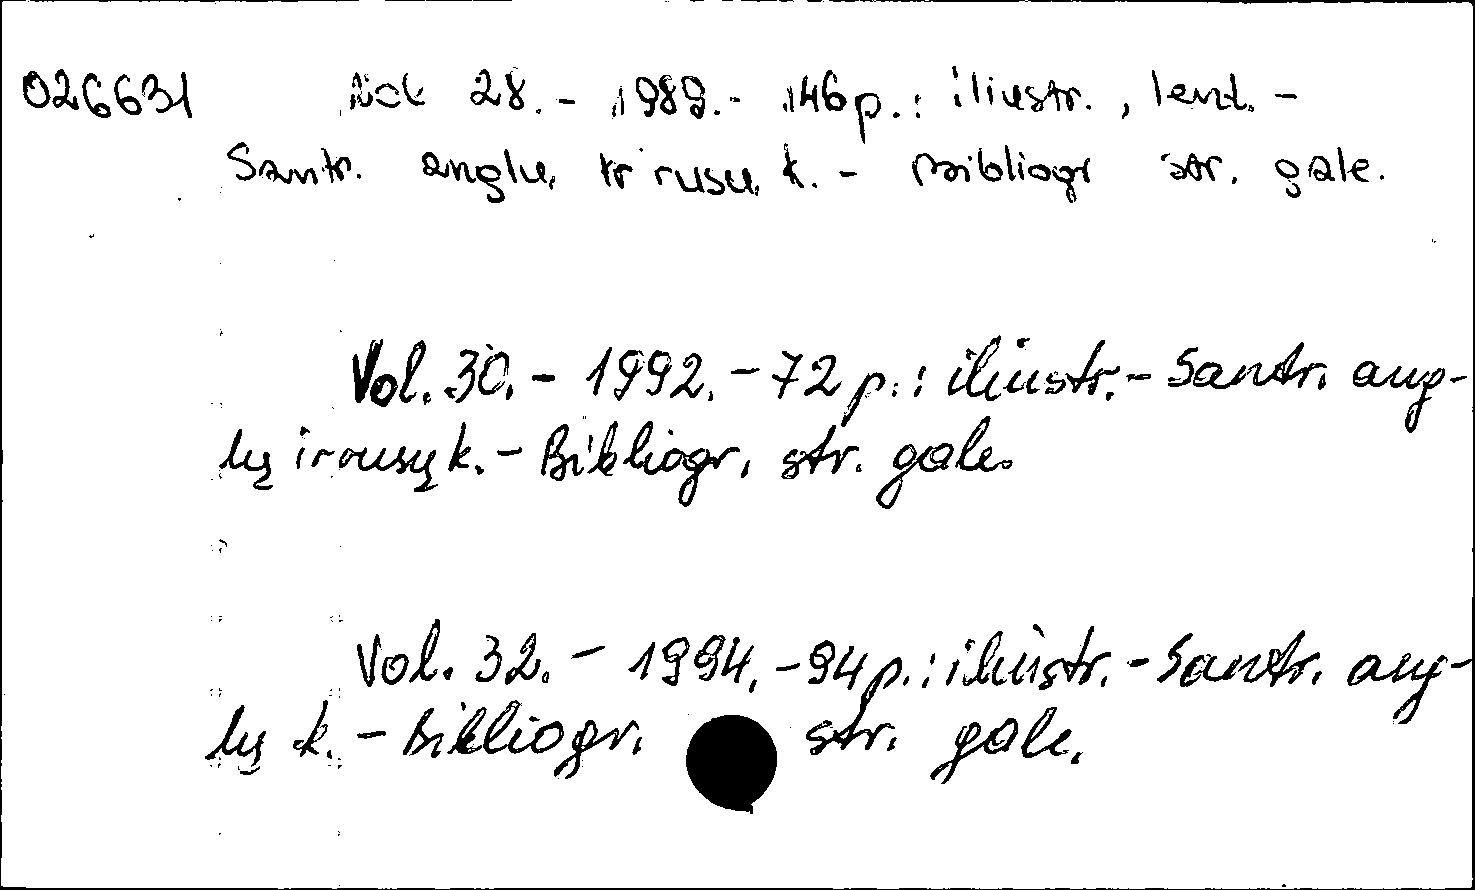 026631 Vol. 28. - 1989. - 146 p. : iliustr., lent. -
Santr. anglų, ir rusų k. - Bibliogr str. gale.
Vol. 30. - 1992. - 72 p. : iliustr. - Santr. ang-
lų ir rusų k. - Bibliogr. str. gale.
Vol. 32. - 1994. - 94 p. : iliustr. - Santr. ang-
lų k. - Bibliogr. str. gale.